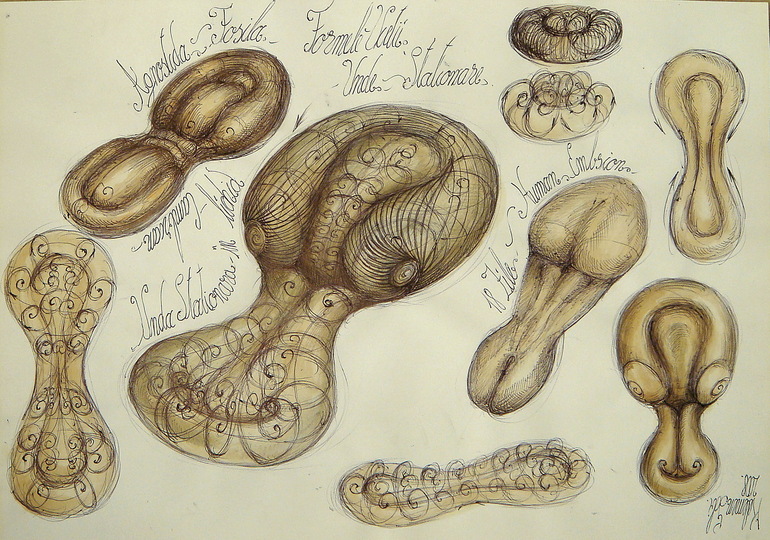 Agnostida Fosila
Formele Vietii
Unde Stationare
Cambrian
Unda Stationara in
18 Zile
Human Embrion